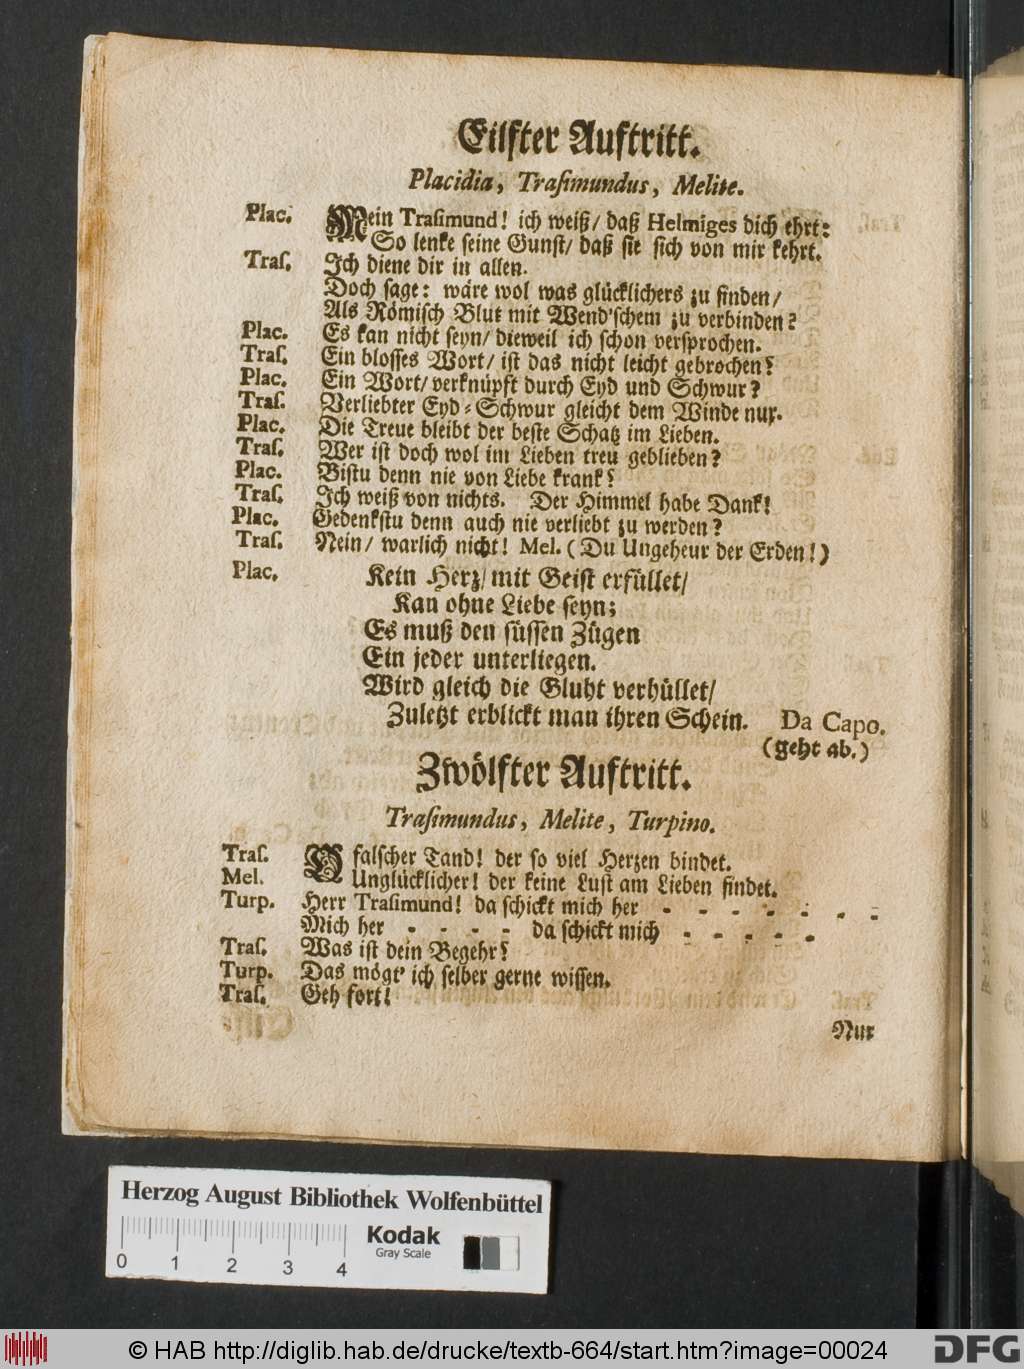 Eilfter Auftritt.
Placidia, Trasimundus, Melite.
Plac. Mein Trasimund! ich weiß/ daß Helmiges dich ehrt:
So lenke seine Gunst/ daß sie sich von mir kehrt.
Tras. Ich diene dir in allen.
Doch sage: wäre wol was glücklichers zu finden/
Als Römisch Blut mit Wend'schem zu verbinden?
Plac. Es kan nicht seyn/ dieweil ich schon versprochen.
Tras. Ein blosses Wort/ ist das nicht leicht gebrochen?
Plac. Ein Wort/ verknüpft durch Eyd und Schwur?
Tras. Verliebter Eyd-Schwur gleicht dem Winde nur.
Plac. Die Treue bleibt der beste Schatz im Lieben.
Tras. Wer ist doch wol im Lieben treu geblieben?
Plac. Bistu denn nie von Liebe krank?
Tras. Ich weiß von nichts. Der Himmel habe Dank!
Plac. Gedenkstu denn auch nie verliebt zu werden?
Tras. Nein/ warlich nicht! Mel. (Du Ungeheur der Erden!)
Plac. Kein Herz/ mit Geist erfüllet/
Kan ohne Liebe seyn;
Es muß den süssen Zügen
Ein jeder unterliegen.
Wird gleich die Gluht verhüllet/
Zuletzt erblickt man ihren Schein. Da Capo.
(geht ab.)
Zwölfter Auftritt.
Trasimundus, Melite, Turpino.
Tras. O falscher Tand! der so viel Herzen bindet.
Mel. Unglücklicher! der keine Lust am Lieben findet.
Turp. Herr Trasimund! da schickt mich her - - - - - - -
Mich her - - - - da schickt mich - - - - -
Tras. Was ist dein Begehr?
Turp. Das mögt' ich selber gerne wissen.
Tras. Geh fort!
Nur
Herzog August Bibliothek Wolfenbüttel
Kodak
Gray Scale
0 1 2 3 4
© HAB http://diglib.hab.de/drucke/textb-664/start.htm?image=00024
DFG